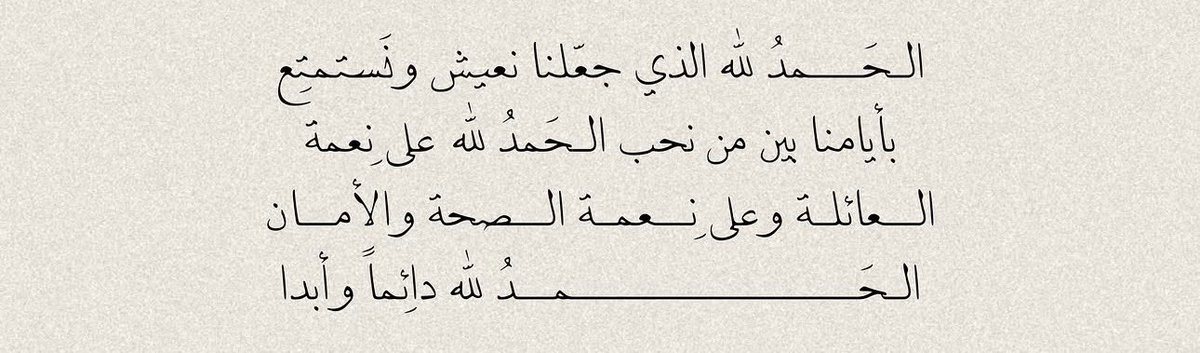 الـحَـــمدُ لله الذي جعّلنا نعيش ونَستمتِع
بأيامنا بين من نحب الـحَمدُ لله على نِعمة
الـــعائلــة وعلى نِـــعمــة الـــصحة والأمـــان
الـحَـــــــــــــــــــمــدُ لله دائِماً وأبدا